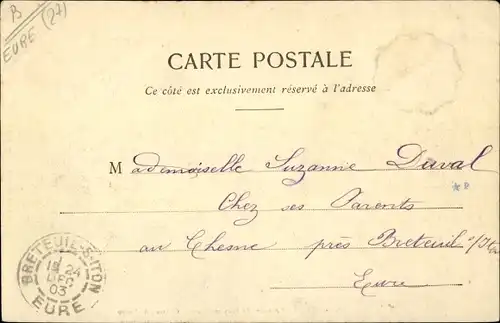 B
(27)
EURE
CARTE POSTALE
Ce côté est exclusivement réservé à l'adresse
Mademoiselle Suzanne Duval
Chez ses Parents
au Chesne près Breteuil s/Iton
Eure
BRETEUIL-S-ITON
24
DEC
03
EURE